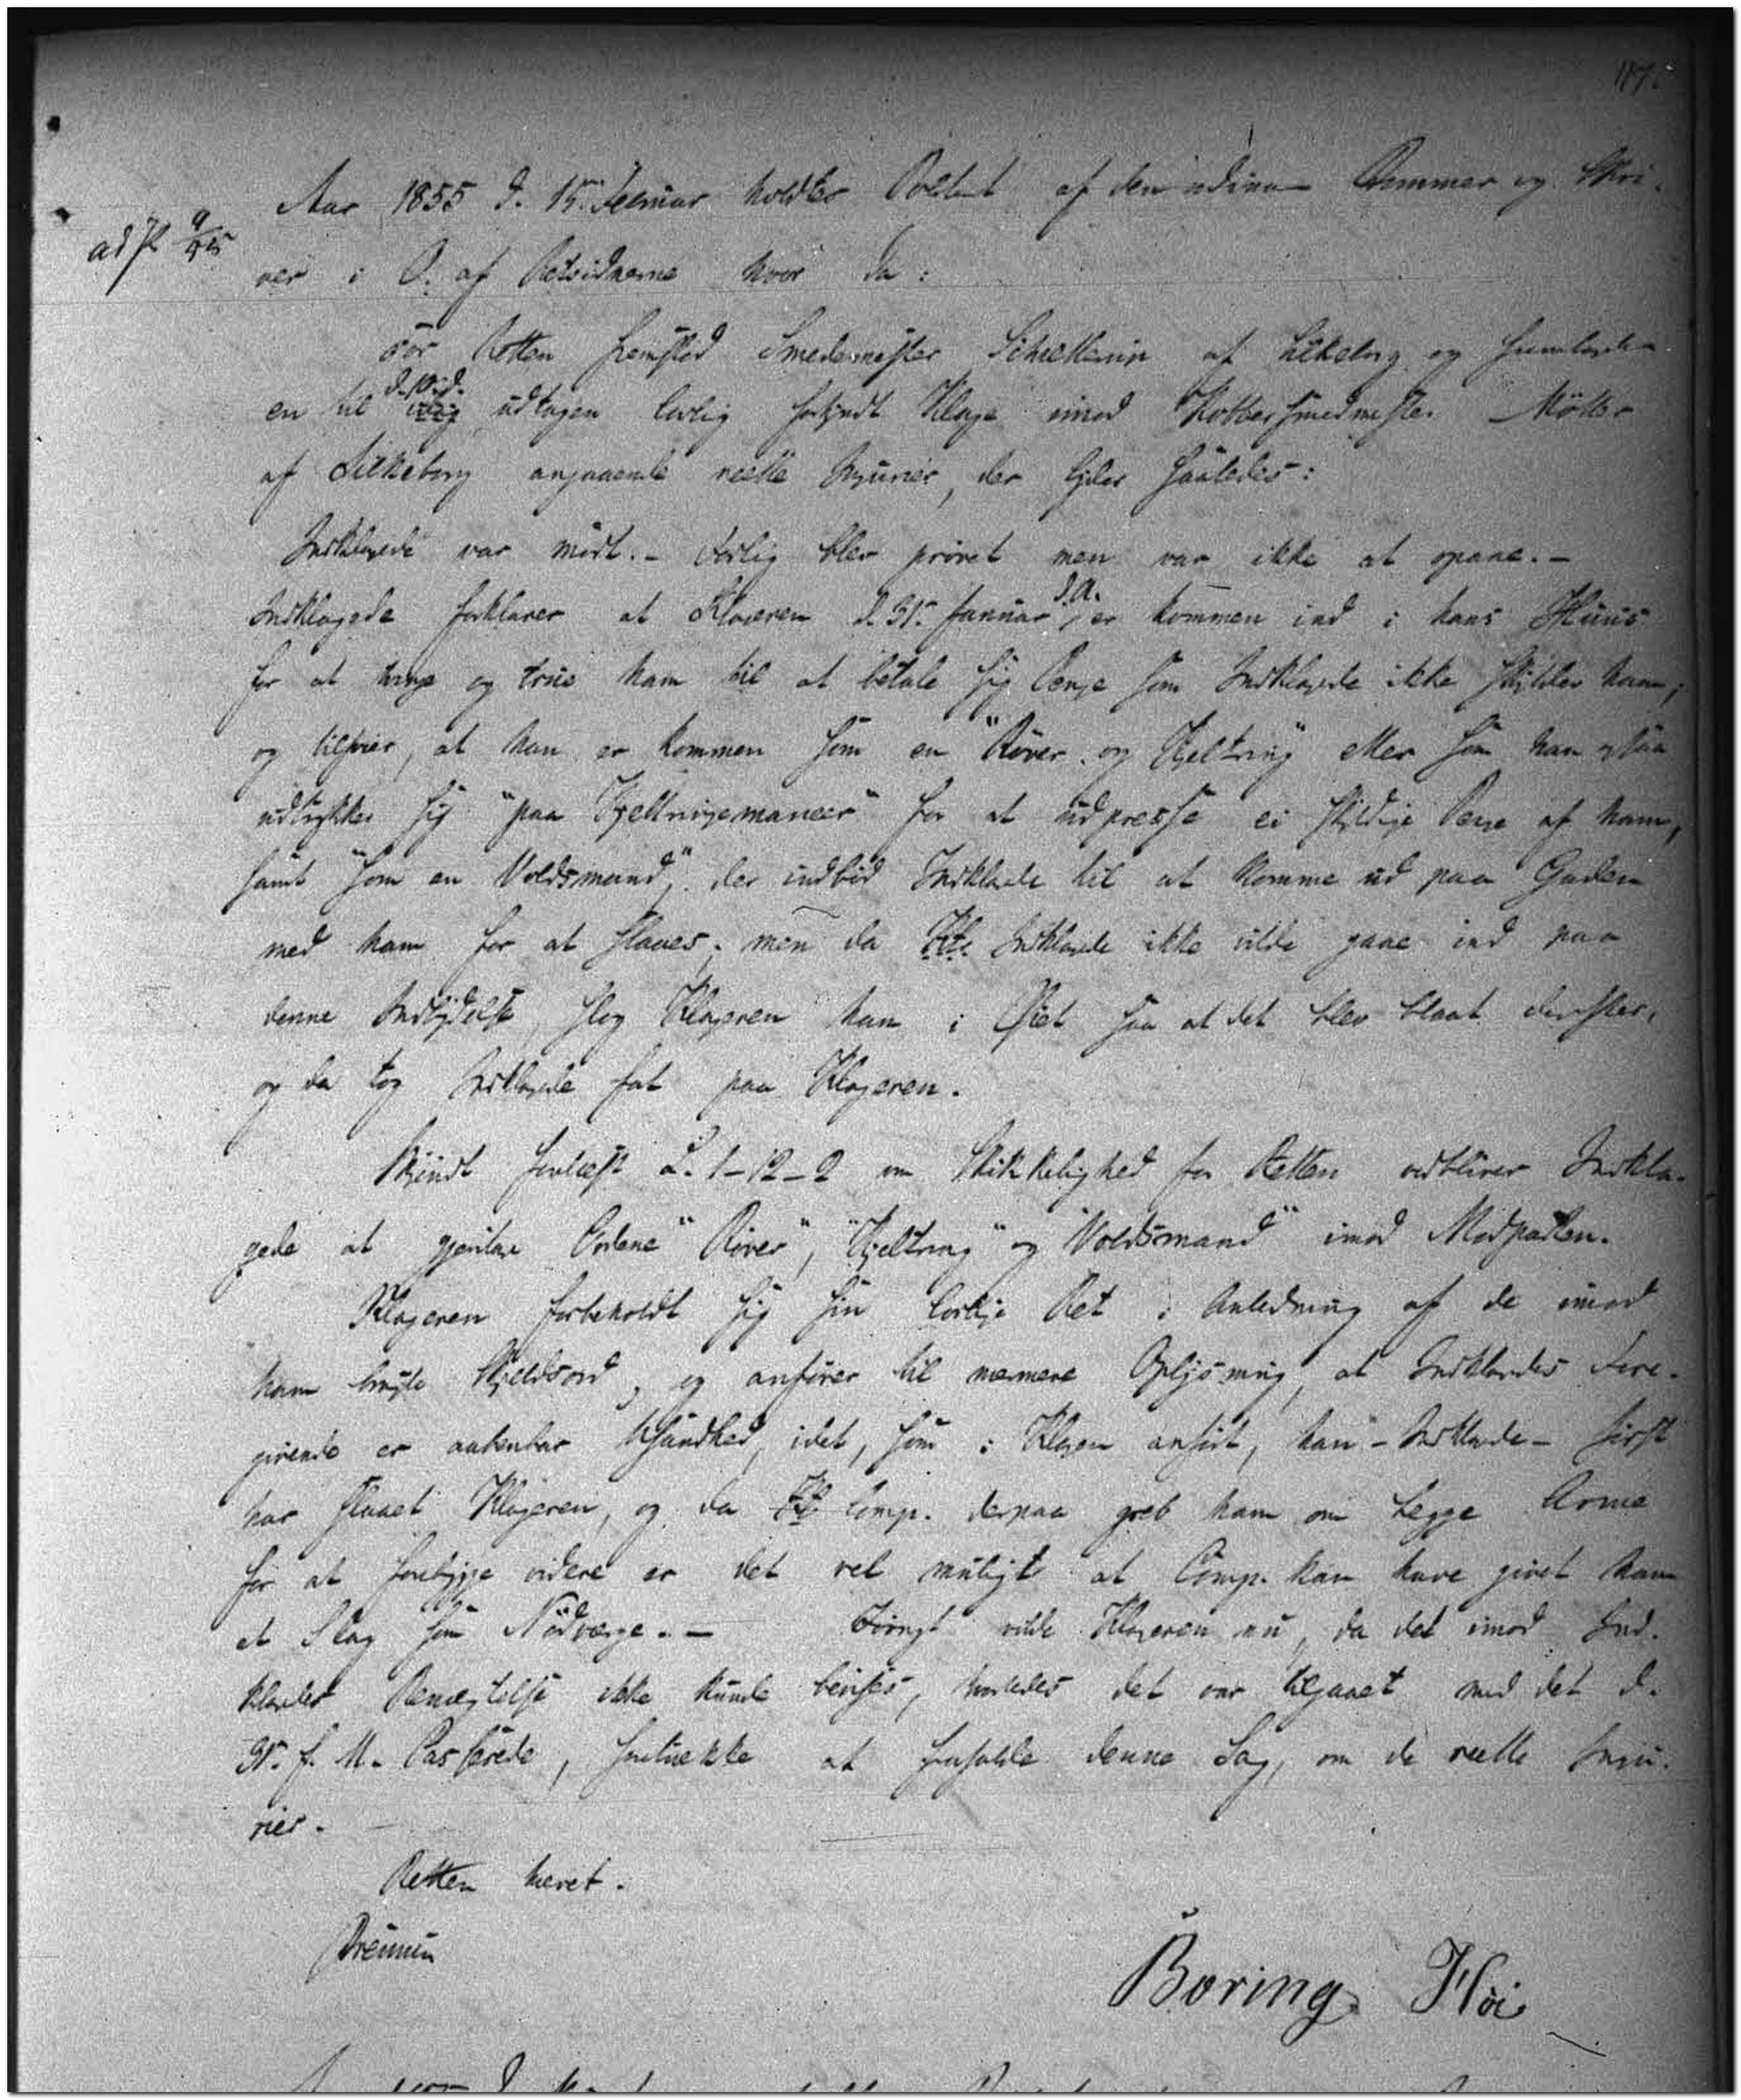 187.
Aar 1855 d. 15. Februar holdtes Politiret af den ordinære Dommer og Skri-
ad № 9/55
ver i O. af Retsvidnerne hvor da:
For Retten fremstod Smedemester af Silkeborg og fremlagde
en til d. D. udtagen lovlig forkyndt Klage imod Kobbersmedmester Møller
af Silkeborg angaaende reelle Injurier, der lyder saaledes:
Indklagede var mødt. – Forlig blev prøvet men var ikke at opnaae. –
Indklagede forklarer at Klageren d. 31. Januar d. A. er kommen ind i hans Huus
for at tvinge og true ham til at betale sig Penge som Indklagede ikke skylder ham;
og tilføier, at han er kommen som en "Røver og Kjeltring" eller som han ogsaa
udtrykker sig "paa Kjeltringemaneer" for at udpresse ei skyldige Penge af ham,
samt "som en Voldsmand", der indbød Indklagede til at komme ud paa Gaden
med ham for at slaaes; men da Kl. Indklagede ikke vilde gaae ind paa
denne Indbydelse, slog Klageren ham i Øiet saa at det blev blaat derefter,
og da tog Indklagede fat paa Klageren.
Skjøndt forelæst L. 1-12-2 om Skikkelighed for Retten vedbliver Indkla-
gede at gjentage Ordene "Røver", "Kjeltring" og "Voldsmand" imod Modparten.
Klageren forbeholdt sig sin lovlige Ret i Anledning af de imod
ham brugte Skjeldsord, og anfører til nærmere Oplysning, at Indklagedes Fore-
givende er aabenbar Usandhed, idet, som i Klagen anført, han – Indklagede – først
har slaaet Klageren, og da Kl. Comp. derpaa greb ham om begge Arme
for at forebygge videre er det vel muligt at Comp. kan have givet ham
et Slag som Nødværge. – Iøvrigt vilde Klageren nu, da det imod Ind-
klagedes Benægtelse ikke kunde bevises, hvorledes det var tilgaaet med det d.
31. f. M. Passerede, foretrække at frafalde denne Sag, om de reelle Inju-
rier. –
Retten hævet.
Boring Høi